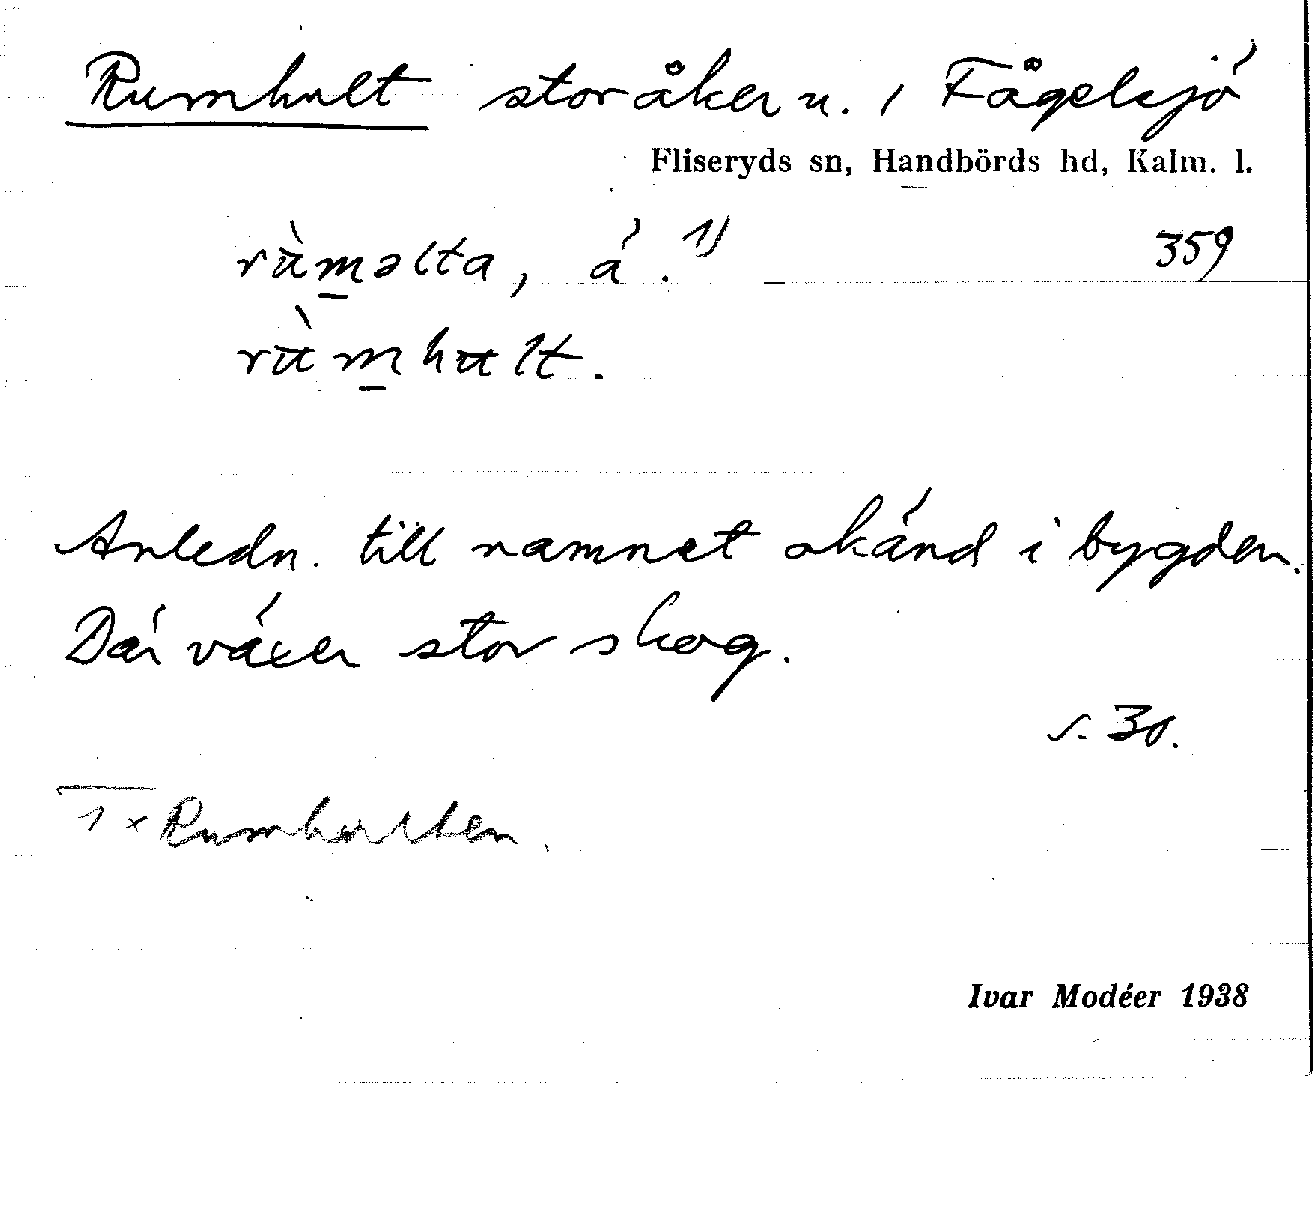 Rumhult storåker n. / Fågelsjö
Fliseryds sn, Handbörds hd, Kalm. l.
rùməlta, á. 1) 359
rùmhult.
Anledn. till namnet okänd i bygden.
Där växer stor skog.
s. 30.
1 × Rumhulten.
Ivar Modéer 1938